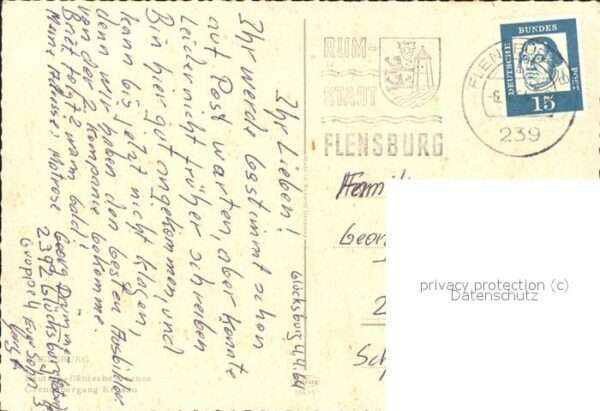 Ihr Lieben!
Ihr werde bestimmt schon
auf Post warten, aber konnte
Leider nicht früher schreiben
Bin hier gut angekommen, und
kann bis jetzt nicht klagen,
denn wir haben den besten Ausbilder
von der 2 Kompanie bekomme.
Brief folgt wann bald!
Meine Adresse: Matrose
Georg
2392 Glücksburg
Gruppe 4
Glücksburg 4.4.64
RUM-
STADT
FLENSBURG
FLENSBURG
239
DEUTSCHE BUNDESPOST
15
Famili
Geor
2
Sc
privacy protection (c)
Datenschutz